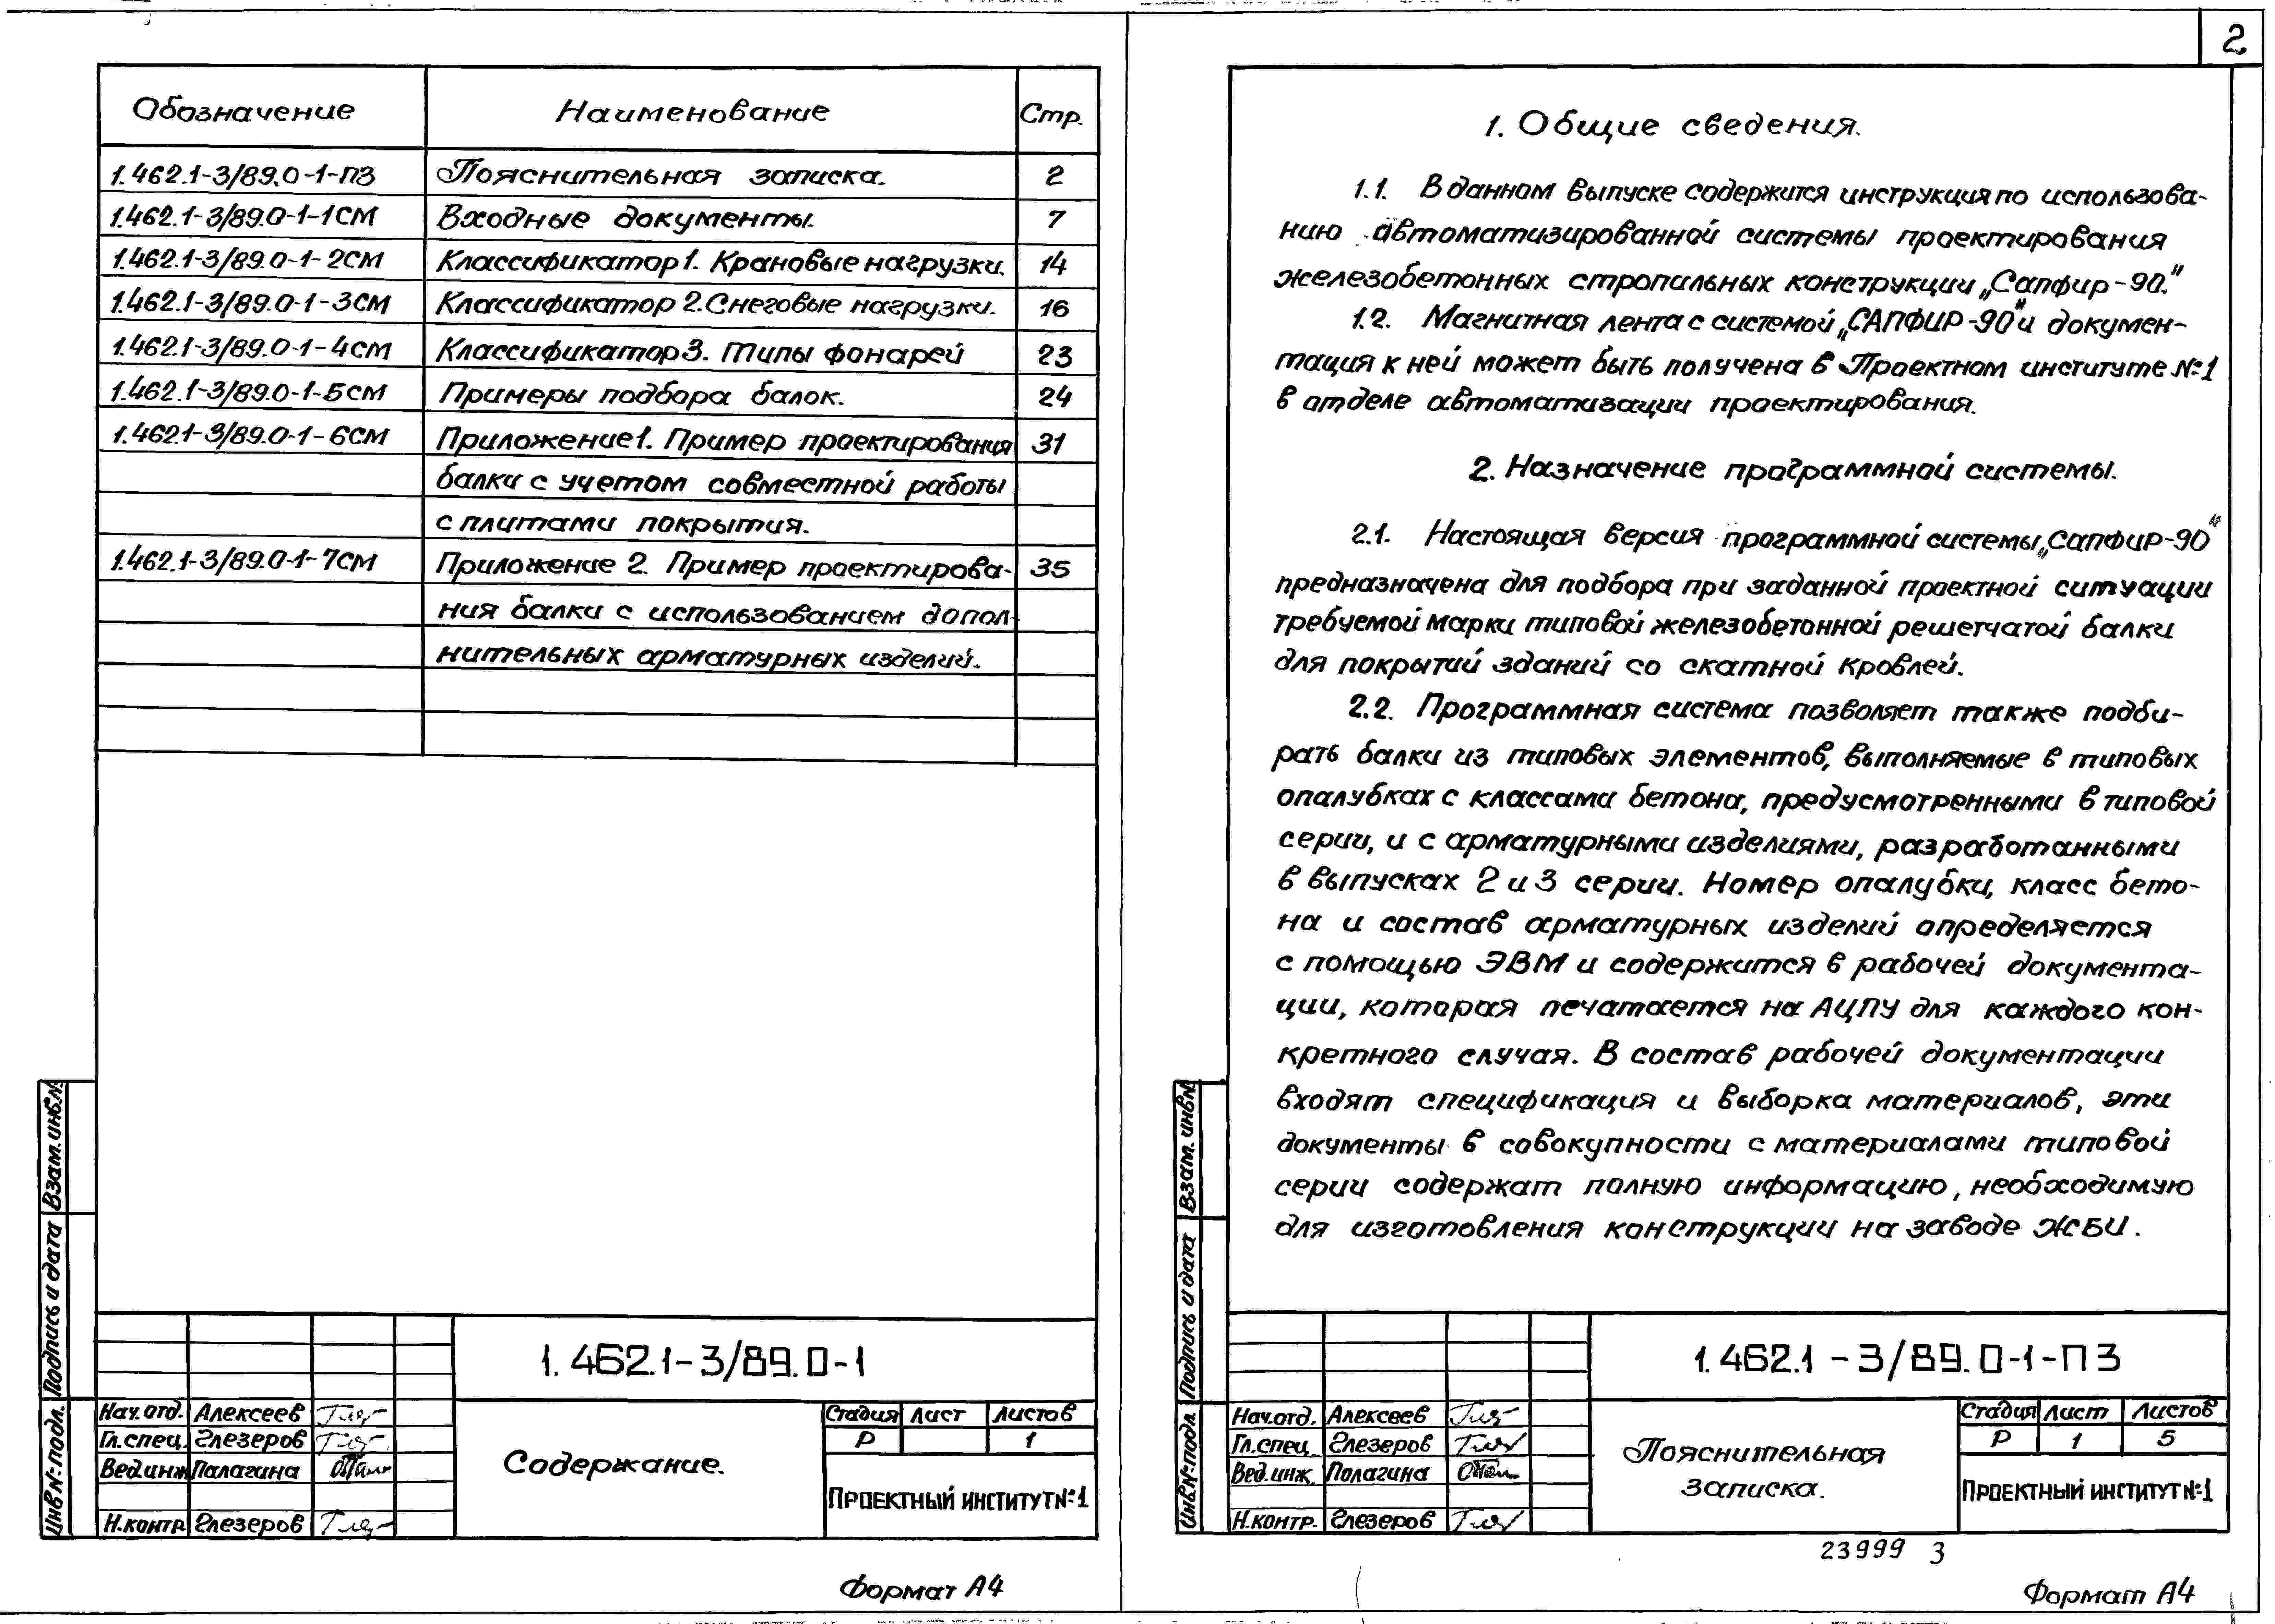 Обозначение Наименование Стр.
1.462.1-3/89.0-1-ПЗ Пояснительная записка. 2
1.462.1-3/89.0-1-1СМ Входные документы. 7
1.462.1-3/89.0-1-2СМ Классификатор 1. Крановые нагрузки. 14
1.462.1-3/89.0-1-3СМ Классификатор 2. Снеговые нагрузки. 16
1.462.1-3/89.0-1-4СМ Классификатор 3. Типы фонарей 23
1.462.1-3/89.0-1-5СМ Примеры подбора балок. 24
1.462.1-3/89.0-1-6СМ Приложение 1. Пример проектирования 31
балки с учетом совместной работы
с плитами покрытия.
1.462.1-3/89.0-1-7СМ Приложение 2. Пример проектирова- 35
ния балки с использованием допол-
нительных арматурных изделий.
Взам. инв.№
Подпись и дата
Инв.№ подл.
1.462.1-3/89.0-1
Нач.отд. Алексеев
Гл.спец. Глезеров
Вед.инж. Палагина
Н.контр Глезеров
Содержание.
Стадия Лист Листов
Р 1
ПРОЕКТНЫЙ ИНСТИТУТ №1
Формат А4
2
1. Общие сведения.
1.1. В данном выпуске содержится инструкция по использова-
нию автоматизированной системы проектирования
железобетонных стропильных конструкции „Сапфир-90."
1.2. Магнитная лента с системой „САПФИР-90" и докумен-
тация к ней может быть получена в Проектном институте №1
в отделе автоматизации проектирования.
2. Назначение программной системы.
2.1. Настоящая версия программной системы „Сапфир-90"
предназначена для подбора при заданной проектной ситуации
требуемой марки типовой железобетонной решетчатой балки
для покрытий зданий со скатной кровлей.
2.2. Программная система позволяет также подби-
рать балки из типовых элементов, выполняемые в типовых
опалубках с классами бетона, предусмотренными в типовой
серии, и с арматурными изделиями, разработанными
в выпусках 2 и 3 серии. Номер опалубки, класс бето-
на и состав арматурных изделий определяется
с помощью ЭВМ и содержится в рабочей документа-
ции, которая печатается на АЦПУ для каждого кон-
кретного случая. В состав рабочей документации
входят спецификация и выборка материалов, эти
документы в совокупности с материалами типовой
серии содержат полную информацию, необходимую
для изготовления конструкции на заводе ЖБИ.
Взам. инв№
Подпись и дата
Инв.№ подл
1.462.1-3/89.0-1-ПЗ
Нач.отд. Алексеев
Гл.спец. Глезеров
Вед.инж. Палагина
Н.контр. Глезеров
Пояснительная
записка.
Стадия Лист Листов
Р 1 5
ПРОЕКТНЫЙ ИНСТИТУТ №1
23999 3
Формат А4